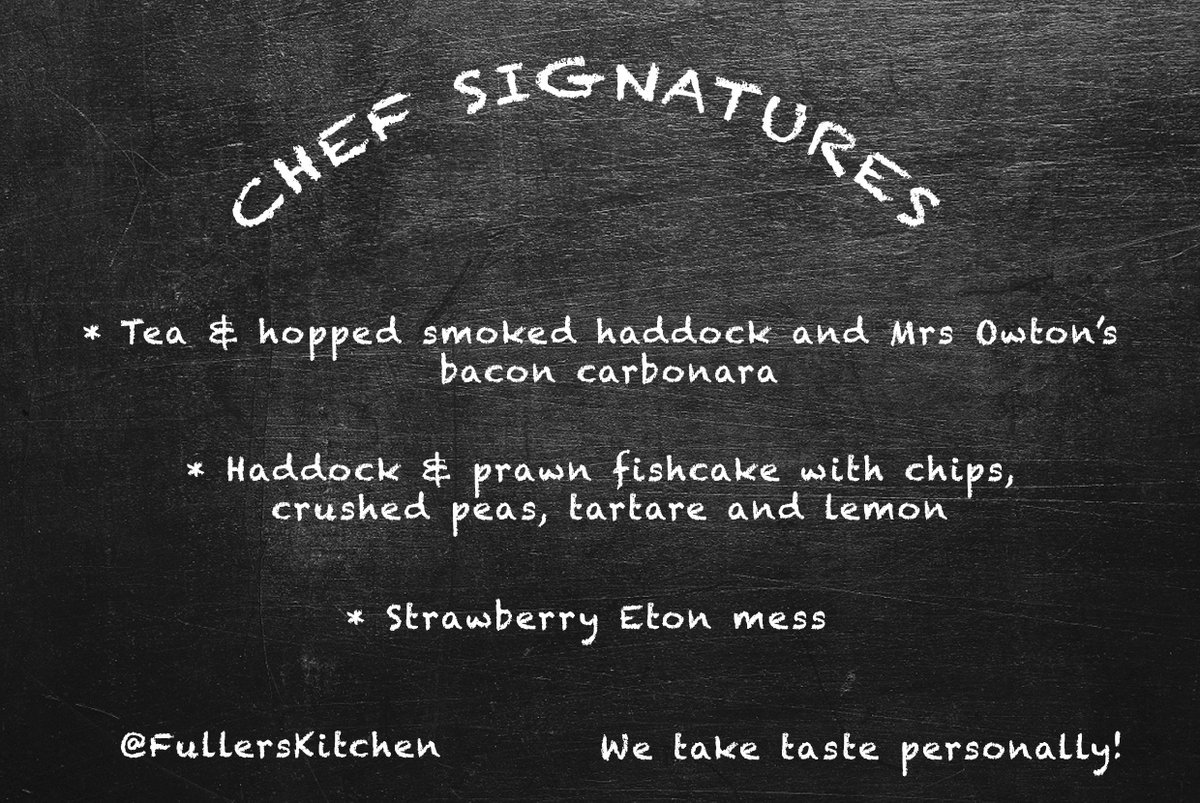 CHEF SIGNATURES
* Tea & hopped smoked haddock and Mrs Owton's
bacon carbonara
* Haddock & prawn fishcake with chips,
crushed peas, tartare and lemon
* Strawberry Eton mess
@FullersKitchen
We take taste personally!